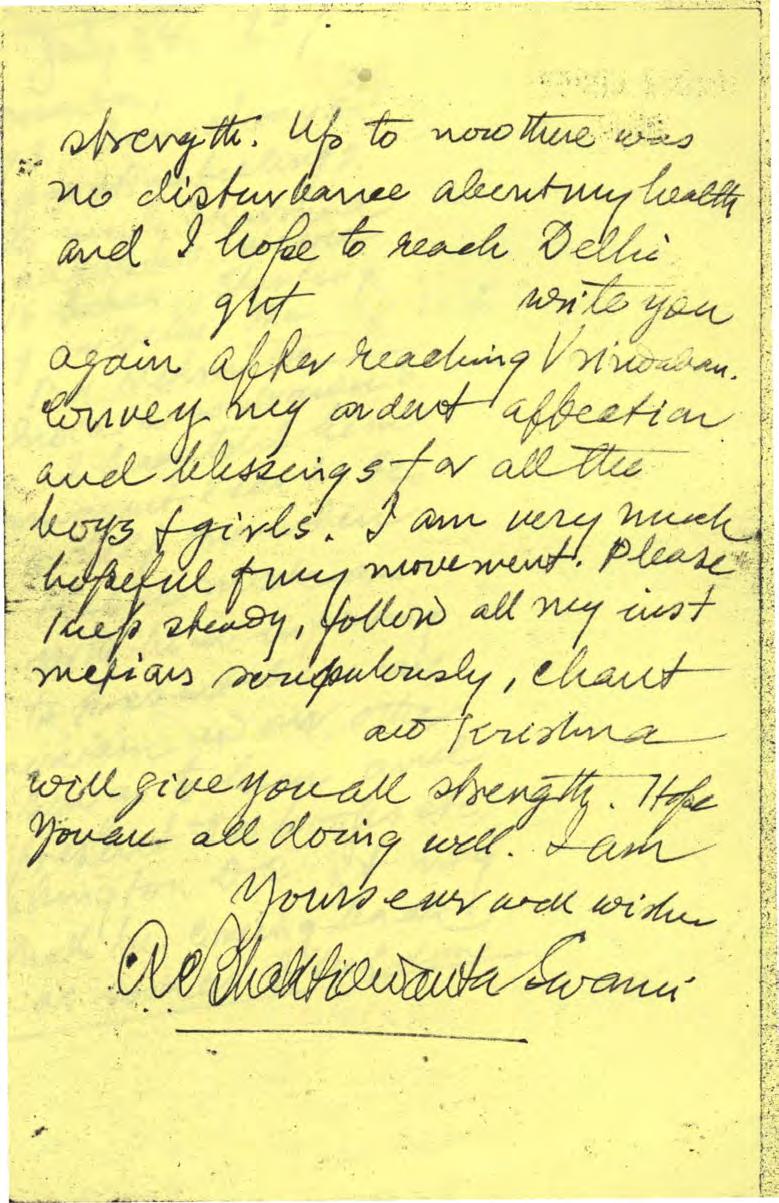 strength. Up to now there was
no disturbance about my health
and I hope to reach Delhi
ght write you
again after reaching Vrindaban.
Convey my ardent affection
and blessings for all the
boys & girls. I am very much
hopeful of my movement. Please
keep steady, follow all my inst
ructions scrupulously, chant
and Krishna
will give you all strength. Hope
you are all doing well. I am
Yours ever well wisher
A C Bhaktivedanta Swami